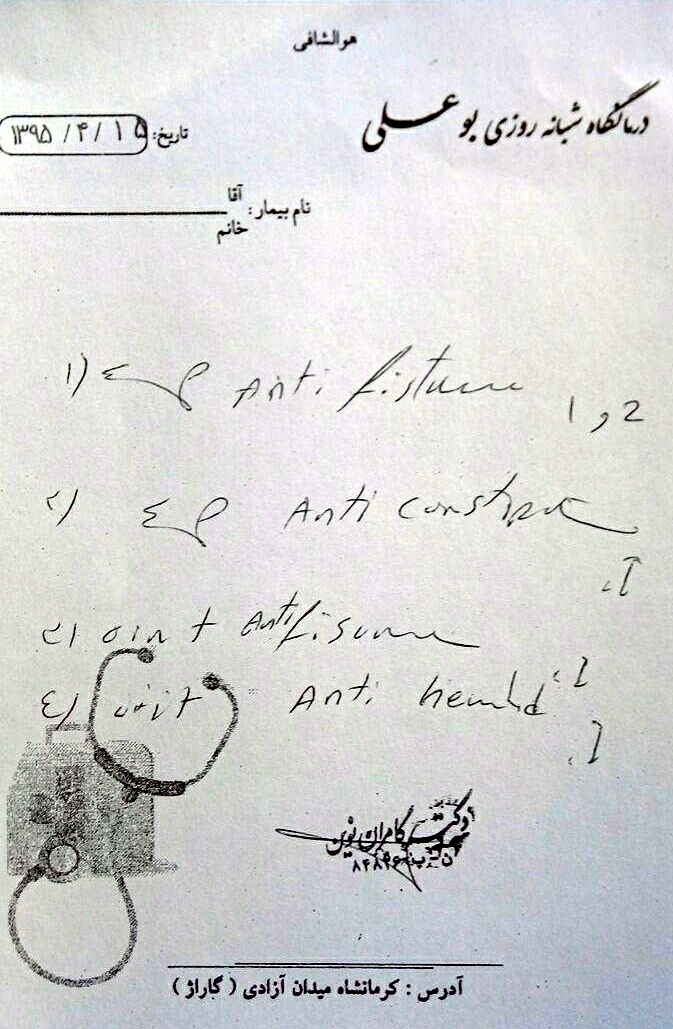 هوالشافی
درمانگاه شبانه روزی بو علی
تاریخ: ۱۳۹۵ / ۴ / ۱۵
نام بیمار: آقا
خانم
1) Anti fistume 1 و 2
۲) Anti constipat
۳) oint Anti fisume
٤) oint Anti hemhd
دکتر کامران نوین
آدرس : کرمانشاه میدان آزادی ( گاراژ )